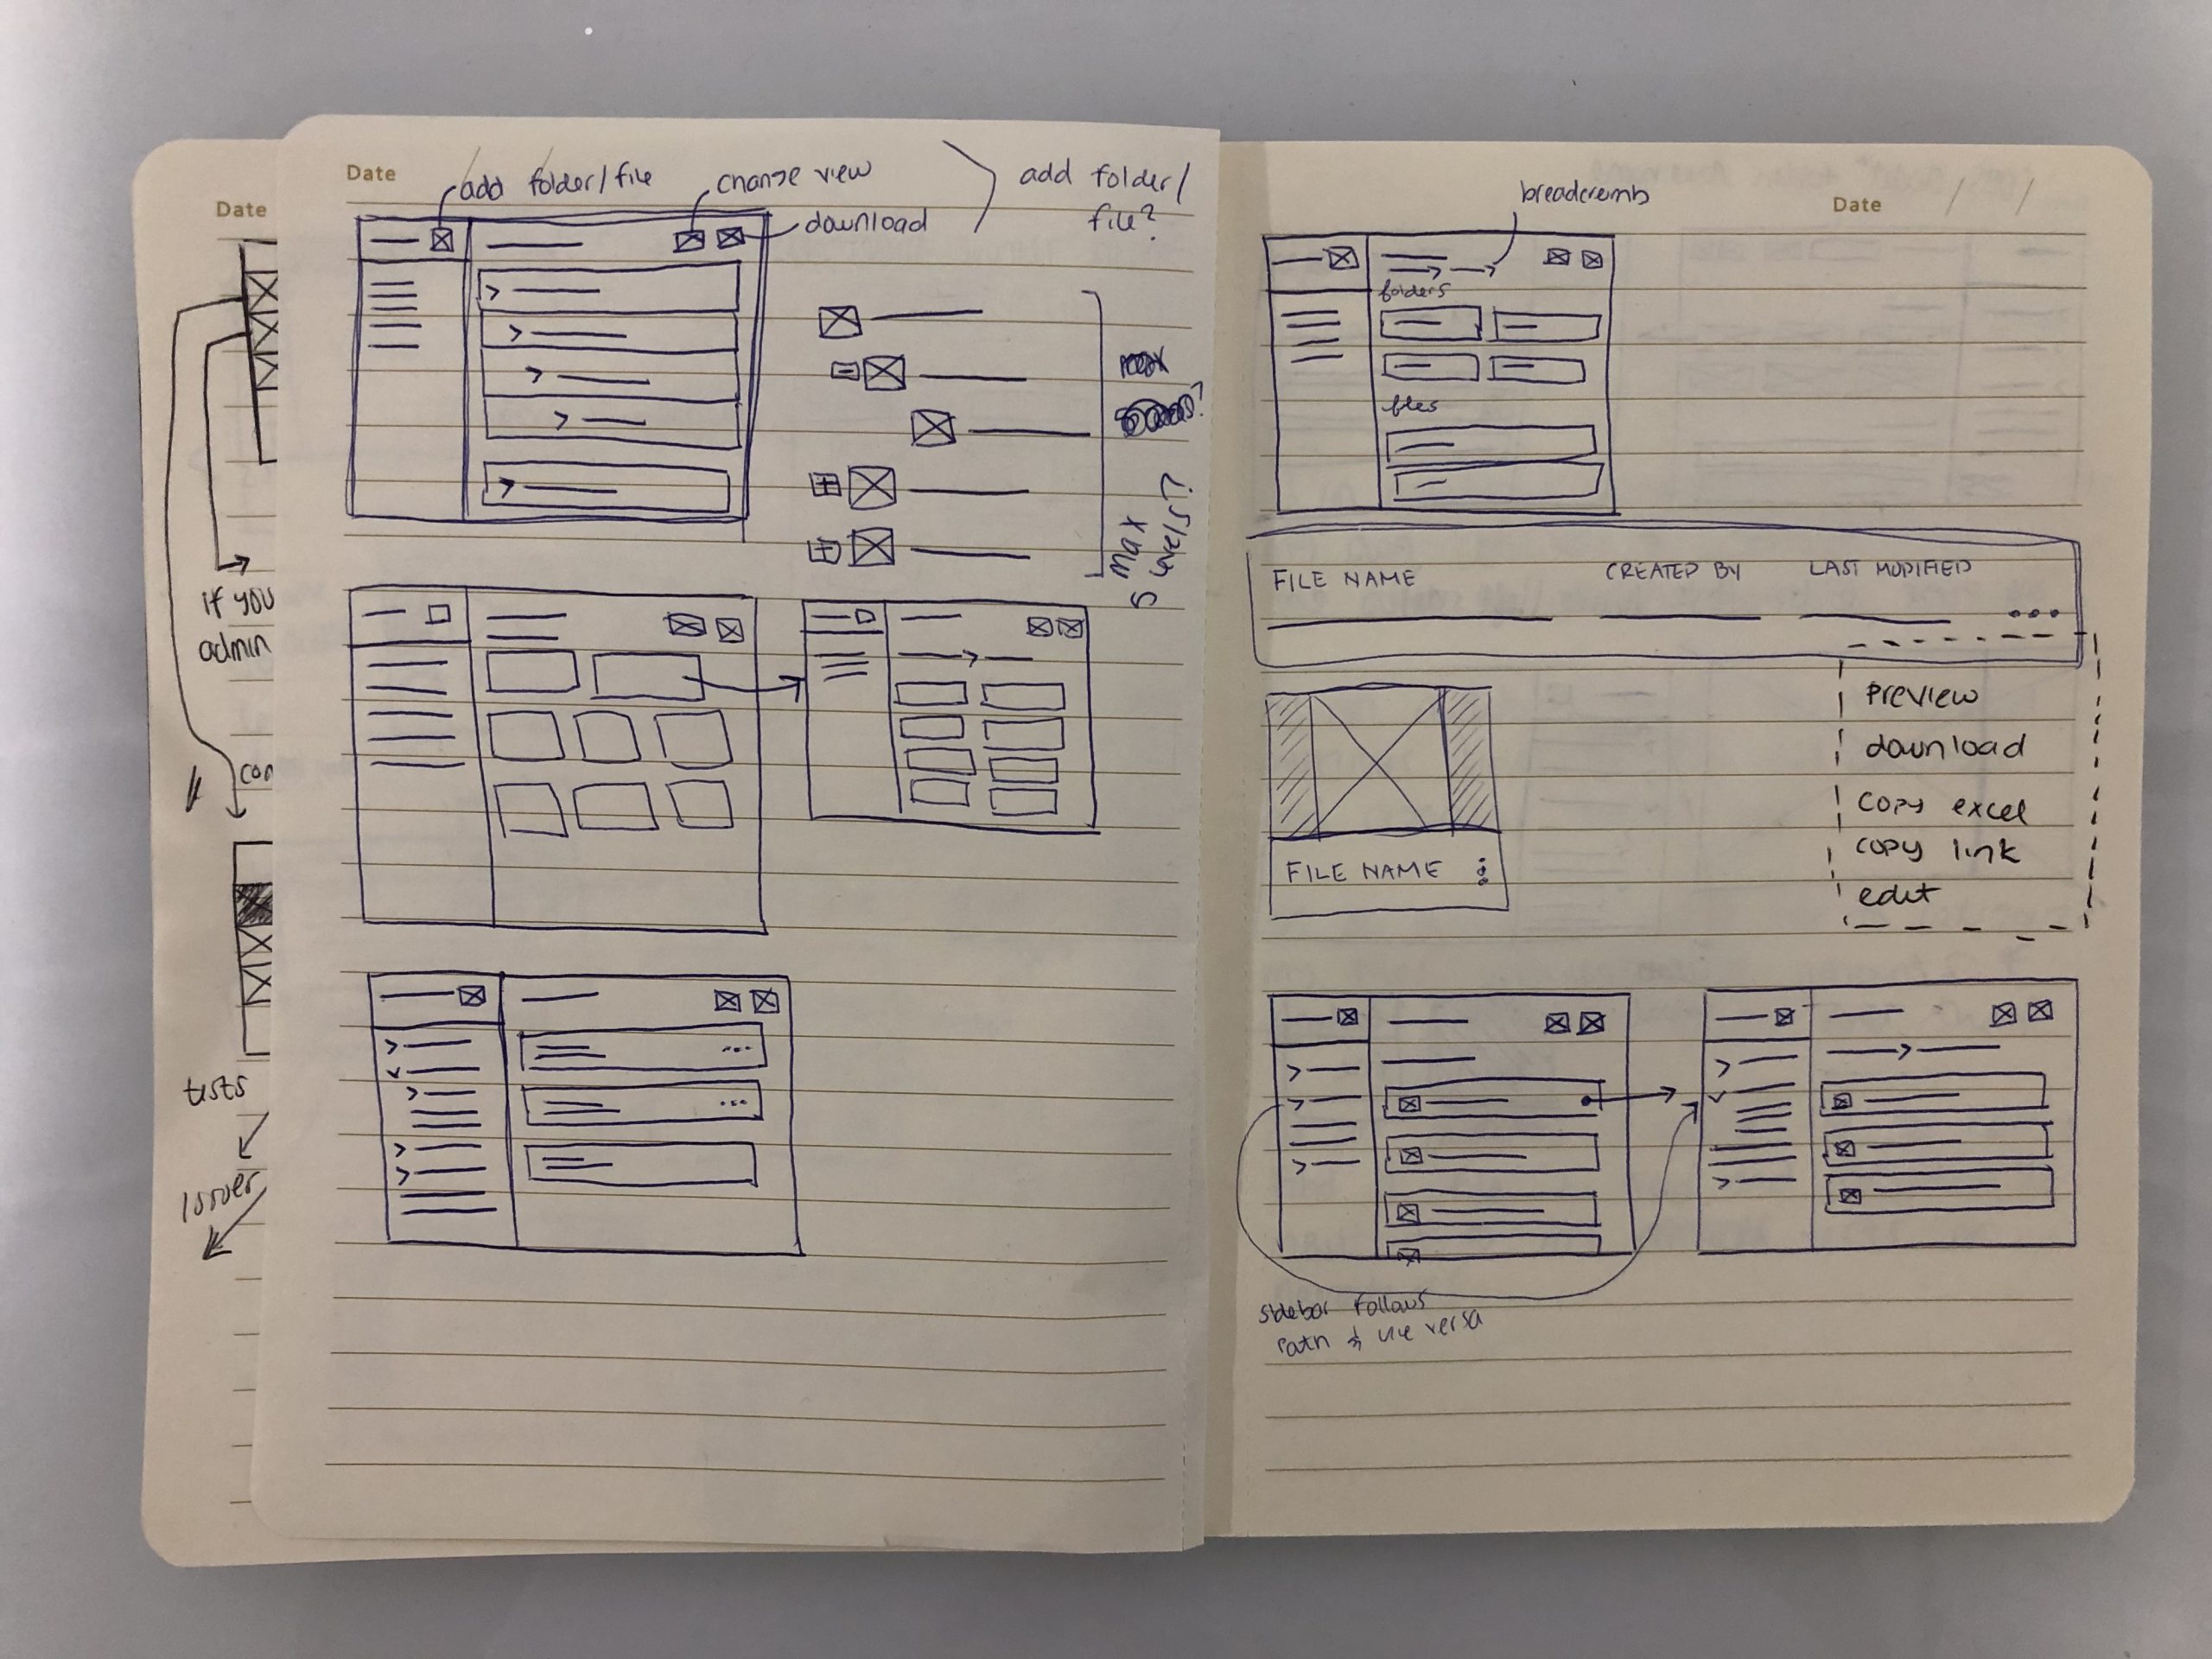 Date
if you
admin
tests
Issuer
Date
add folder/file
change view
download
add folder/
file?
max
5 levels?
Date
breadcrumb
folders
files
FILE NAME CREATED BY LAST MODIFIED
preview
download
copy excel
copy link
edit
FILE NAME
sidebar follows
path & vice versa